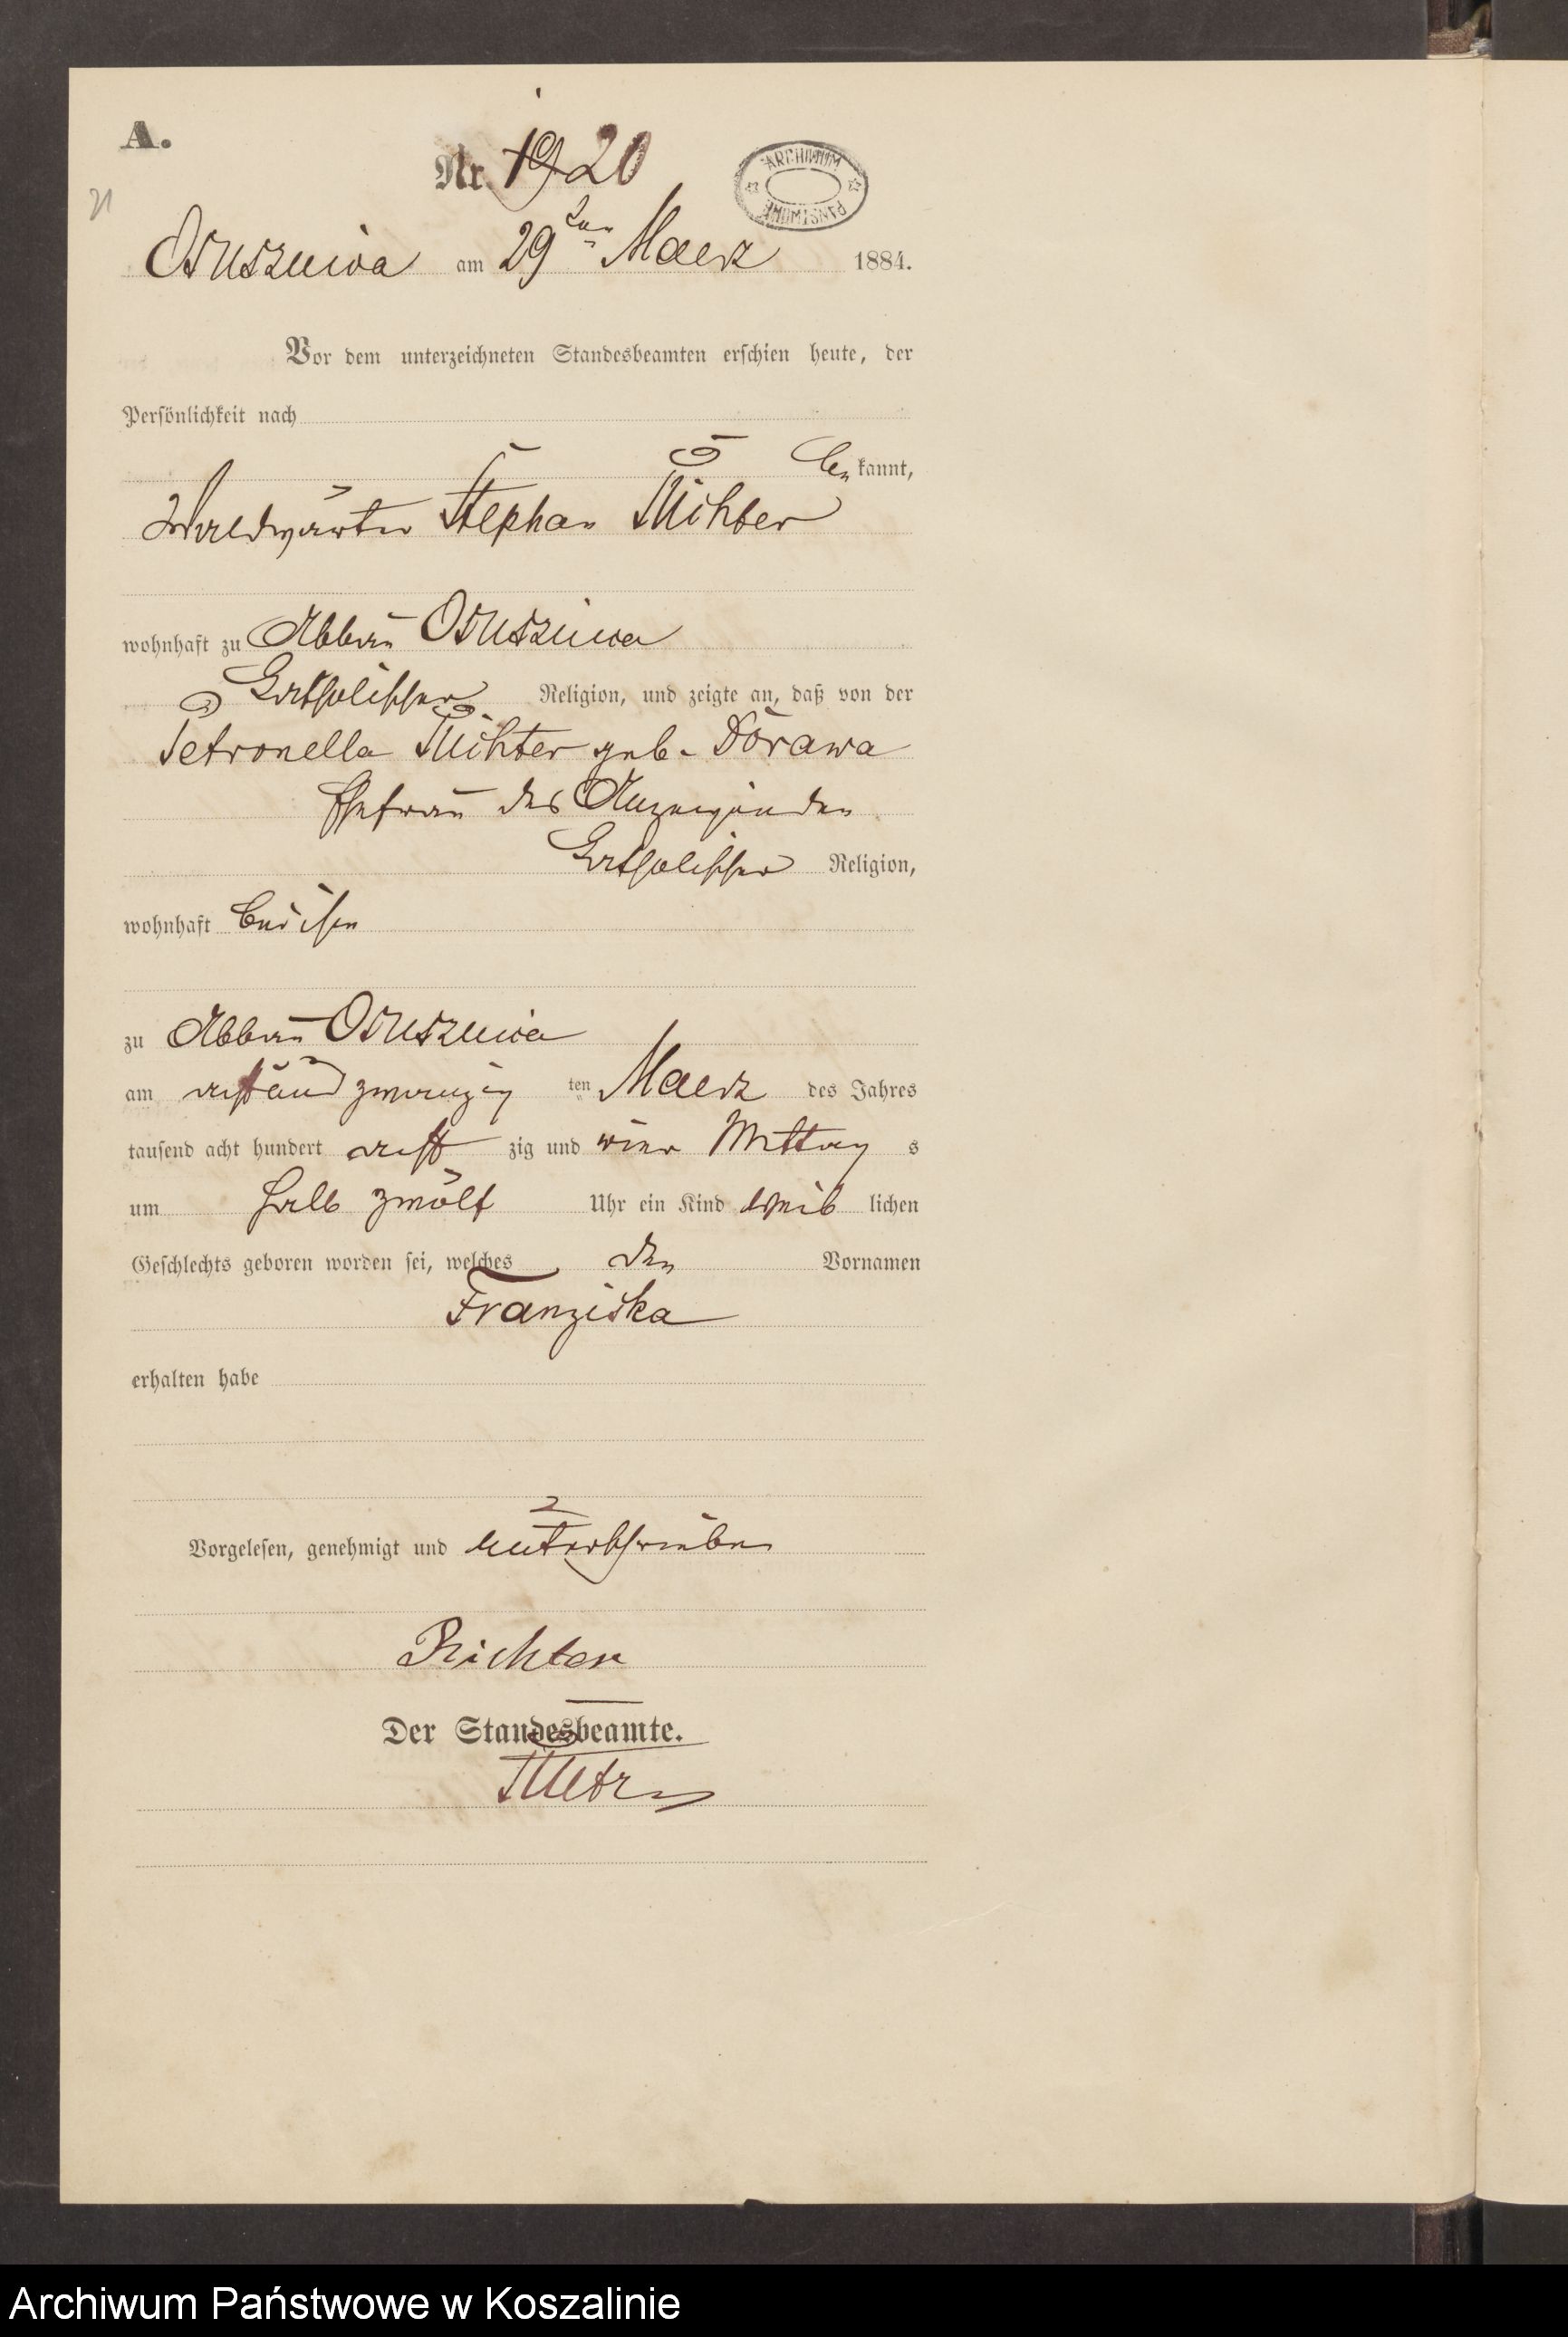 A.
Nr. 19 20
ARCHIWUM PAŃSTWOWE
Ossusznica am 29ten Maerz 1884.
Vor dem unterzeichneten Standesbeamten erschien heute, der
Persönlichkeit nach
be kannt,
Waldwärter Stephan Richter
wohnhaft zu Abbau Ossusznica
katholischer Religion, und zeigte an, daß von der
Petronella Richter geb. Dorawa
Ehefrau des Anzeigenden
katholischer Religion,
wohnhaft bei ihm
zu Abbau Ossusznica
am acht und zwanzig ten Maerz des Jahres
tausend acht hundert acht zig und vier Mittag s
um halb zwölf Uhr ein Kind weib lichen
Geschlechts geboren worden sei, welches den Vornamen
Franziska
erhalten habe
Vorgelesen, genehmigt und unterschrieben
Richter
Der Standesbeamte.
Archiwum Państwowe w Koszalinie